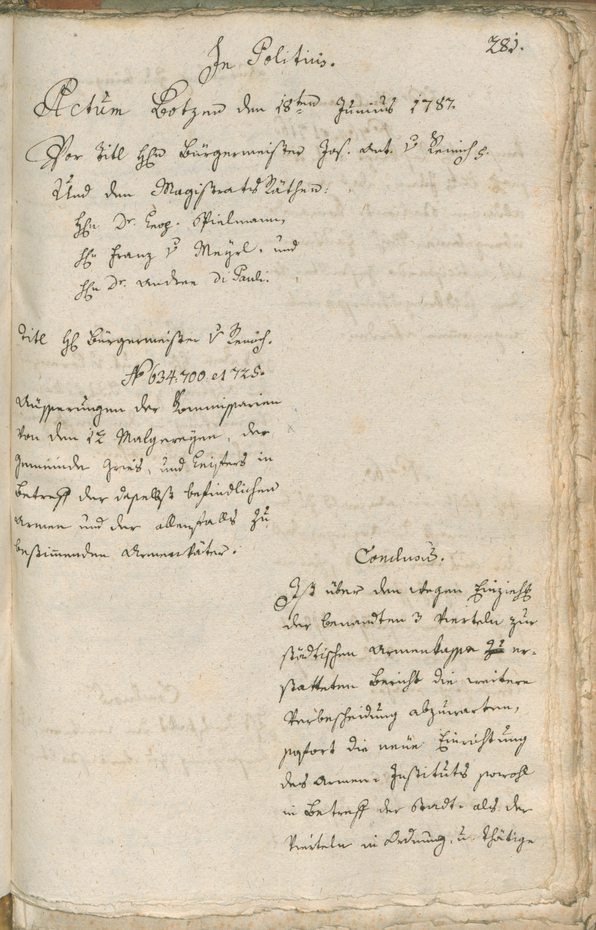 281.
In Politicis.
Actum Botzen den 18ten Junius 1787.
Vor Titl Hhn Bürgermeister Jos. Ant. v Remich
Und den Magistrats Räthen:
Hhn Dr. Leop. Spielmann,
Hhn Franz v Mayrl. und
Hhn Dr. Andrea di Pauli.
Titl Hh Bürgermeister v Remich.
No 634. 700. et 725.
Äusserungen der Kommissarien
von den 12 Malgreyen, der
Gemeinde Gries, und Leifers in
Betreff der daselbst befindlichen
Armen und der allenfalls zu
bestimmenden Armenväter.
Conclusus.
Ist über den wegen Einzieh
der benandten 3 Vierteln zur
städtischen Armenkassa zu er-
statteten Bericht die weitere
Verbescheidung abzuwarten,
sofort die neue Einrichtung
des Armen-Instituts sowohl
in Betreff der Stadt- als der
Vierteln in Ordnung, u. thätige